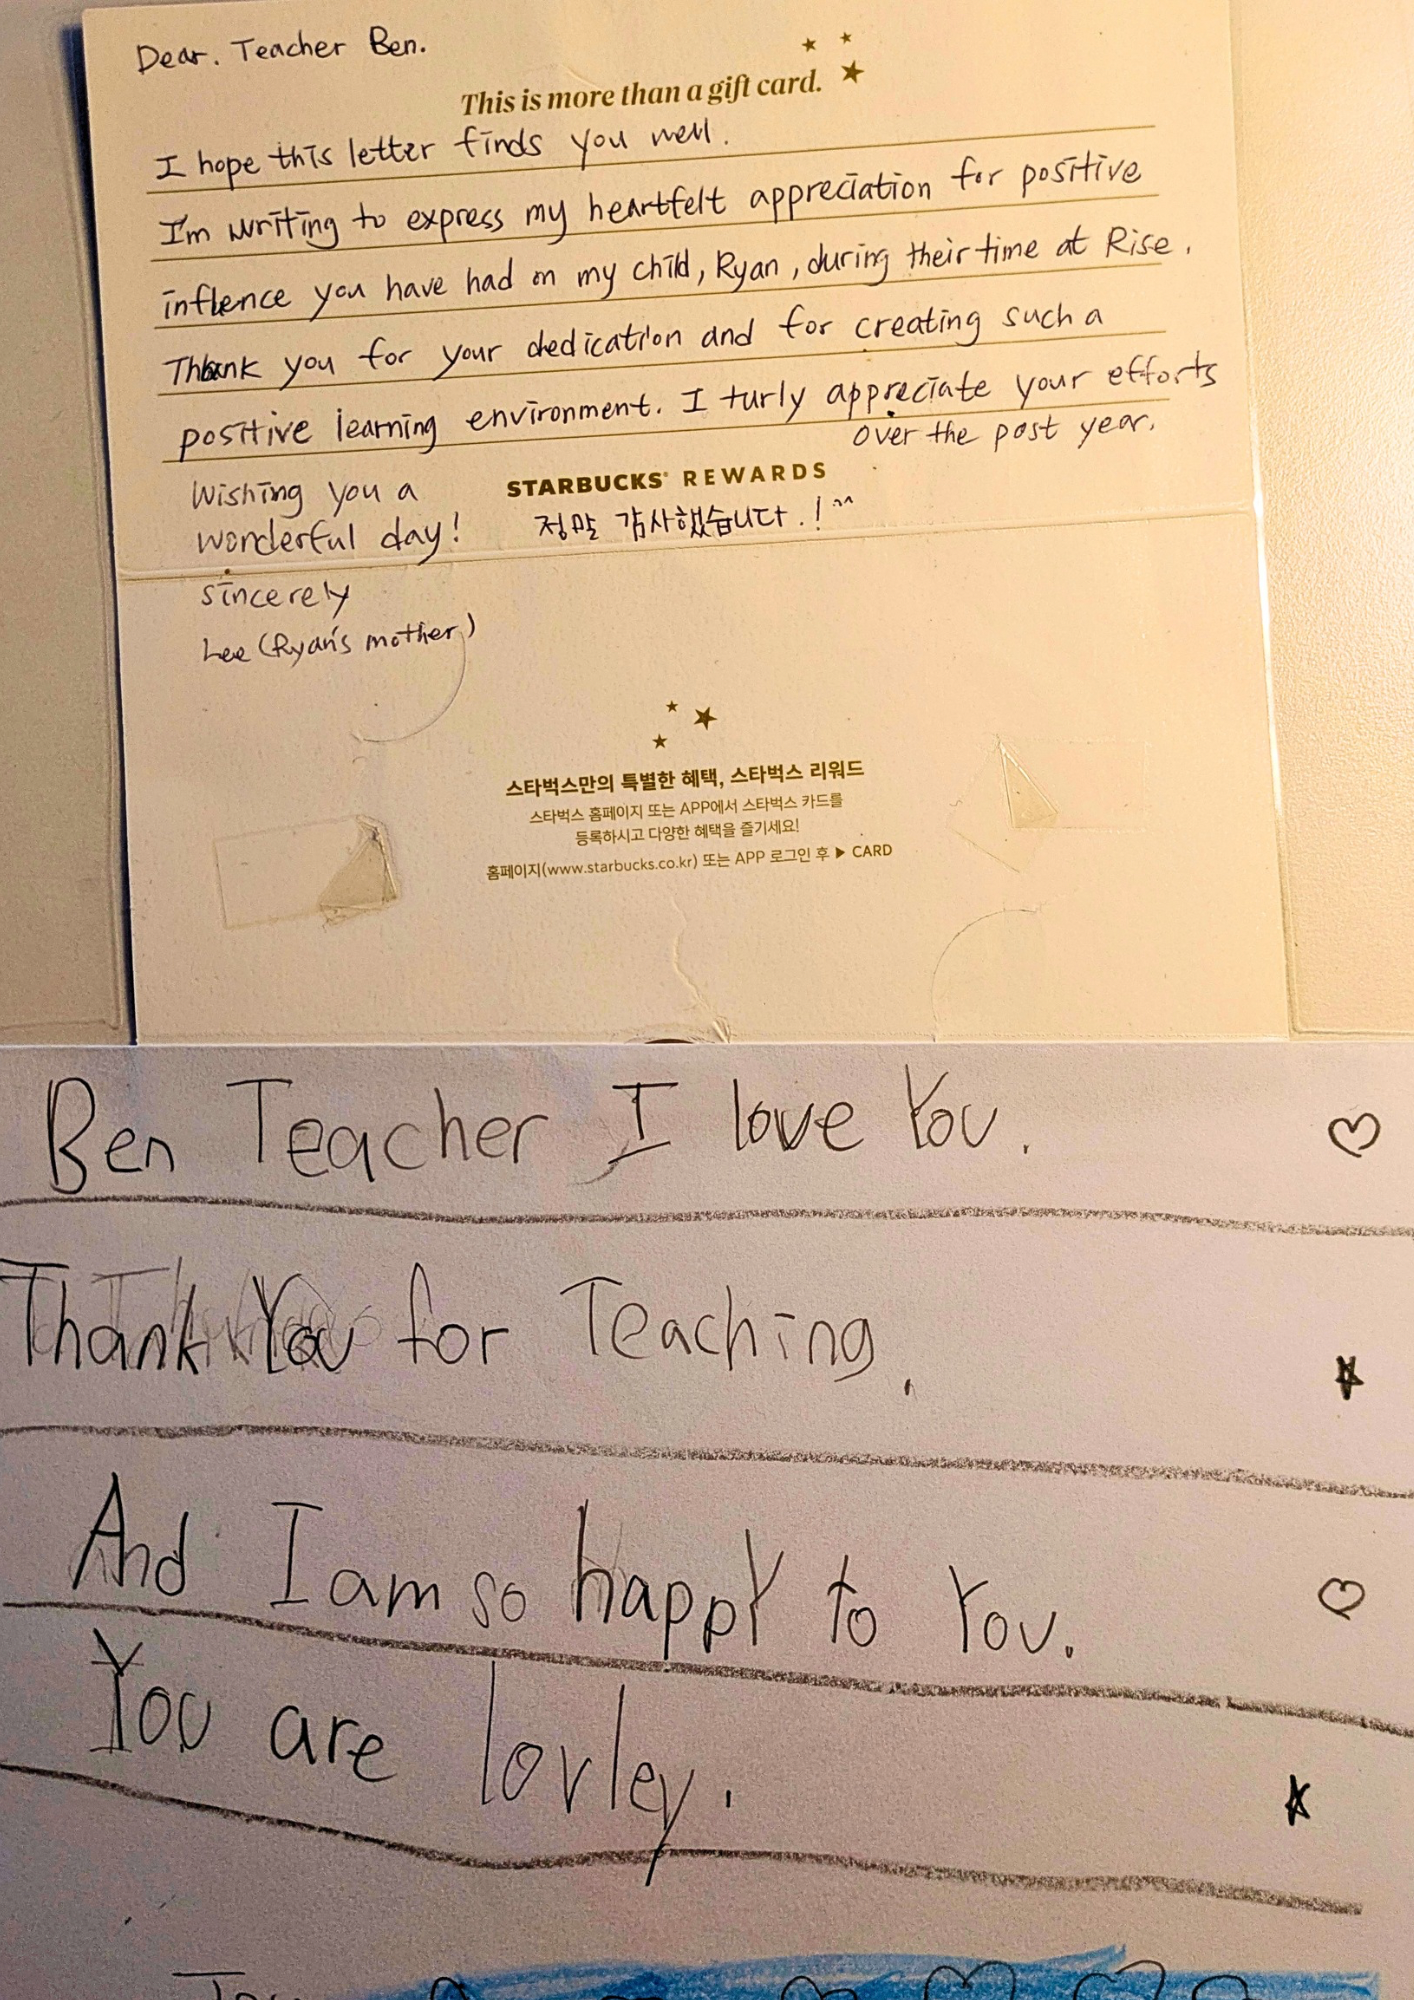 Dear. Teacher Ben.
This is more than a gift card.
I hope this letter finds you well.
I'm writing to express my heartfelt appreciation for positive
inflence you have had on my child, Ryan, during their time at Rise.
Thank you for your dedication and for creating such a
positive learning environment. I turly appreciate your efforts
over the past year.
STARBUCKS® REWARDS
Wishing you a
wonderful day!
정말 감사했습니다.! ^^
sincerely
Lee (Ryan's mother)
스타벅스만의 특별한 혜택, 스타벅스 리워드
스타벅스 홈페이지 또는 APP에서 스타벅스 카드를
등록하시고 다양한 혜택을 즐기세요!
홈페이지(www.starbucks.co.kr) 또는 APP 로그인 후 ▶ CARD
Ben Teacher I love You. ♡
Thank You for Teaching. ★
And I am so happY to You. ♡
You are lovley. ★